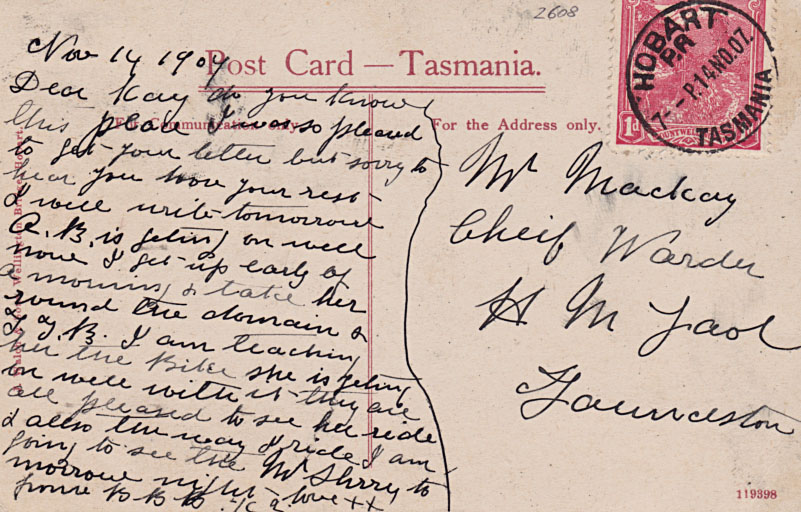 2608
Post Card — Tasmania.
For Communication only.
For the Address only.
HOBART
P.R
7- - P.14 NO.07.
TASMANIA
1d
Nov 14 1907
Dear Kay do you know
this place I was so pleased
to get your letter but sorry to
hear you your rest
I will write tomorrow
A. B. is geting on well
now I get up early of
a morning & take her
round the domain &
I am teaching
her the Bike she is geting
on well with it they are
all pleased to see her ride
& allso the way I ride I am
going to see the Mr Sherry to
morrow night - love ++
from B B B
Mr Mackay
Cheif Warder
H M Gaol
Launceston
119398